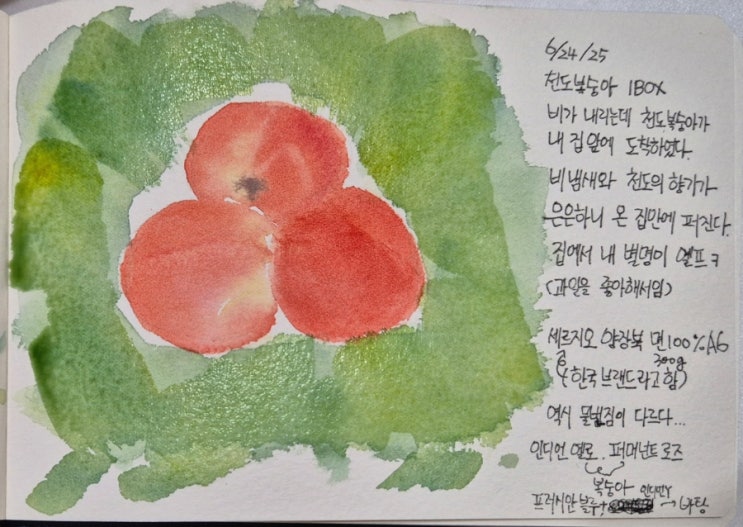 6/24/25
천도복숭아 1BOX
비가 내리는데 천도복숭아가
내 집앞에 도착하였다.
비 냄새와 천도의 향기가
은은하니 온 집안에 퍼진다.
집에서 내 별명이 엘프ㅋ
(과일을 좋아해서임)
세르지오 양장북 면100% A6
300g
(한국 브랜드라고함)
역시 물번짐이 다르다...
인디언 옐로, 퍼머넌트 로즈
복숭아
프러시안블루+ 인디언Y → 바탕